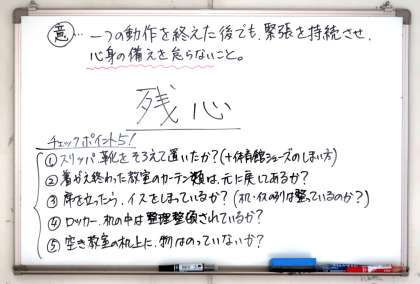 意…一つの動作を終えた後でも、緊張を持続させ、
心身の備えを怠らないこと。
残心
チェックポイント5!
①スリッパ、靴をそろえて置いたか?(+体育館シューズのしまい方)
②着がえ終わった教室のカーテン類は、元に戻してあるか?
③席を立ったら、イスをしまっているか?(机・イスの列は整っているのか?)
④ロッカー、机の中は整理整頓されているか?
⑤空き教室の机上に、物はのっていないか?